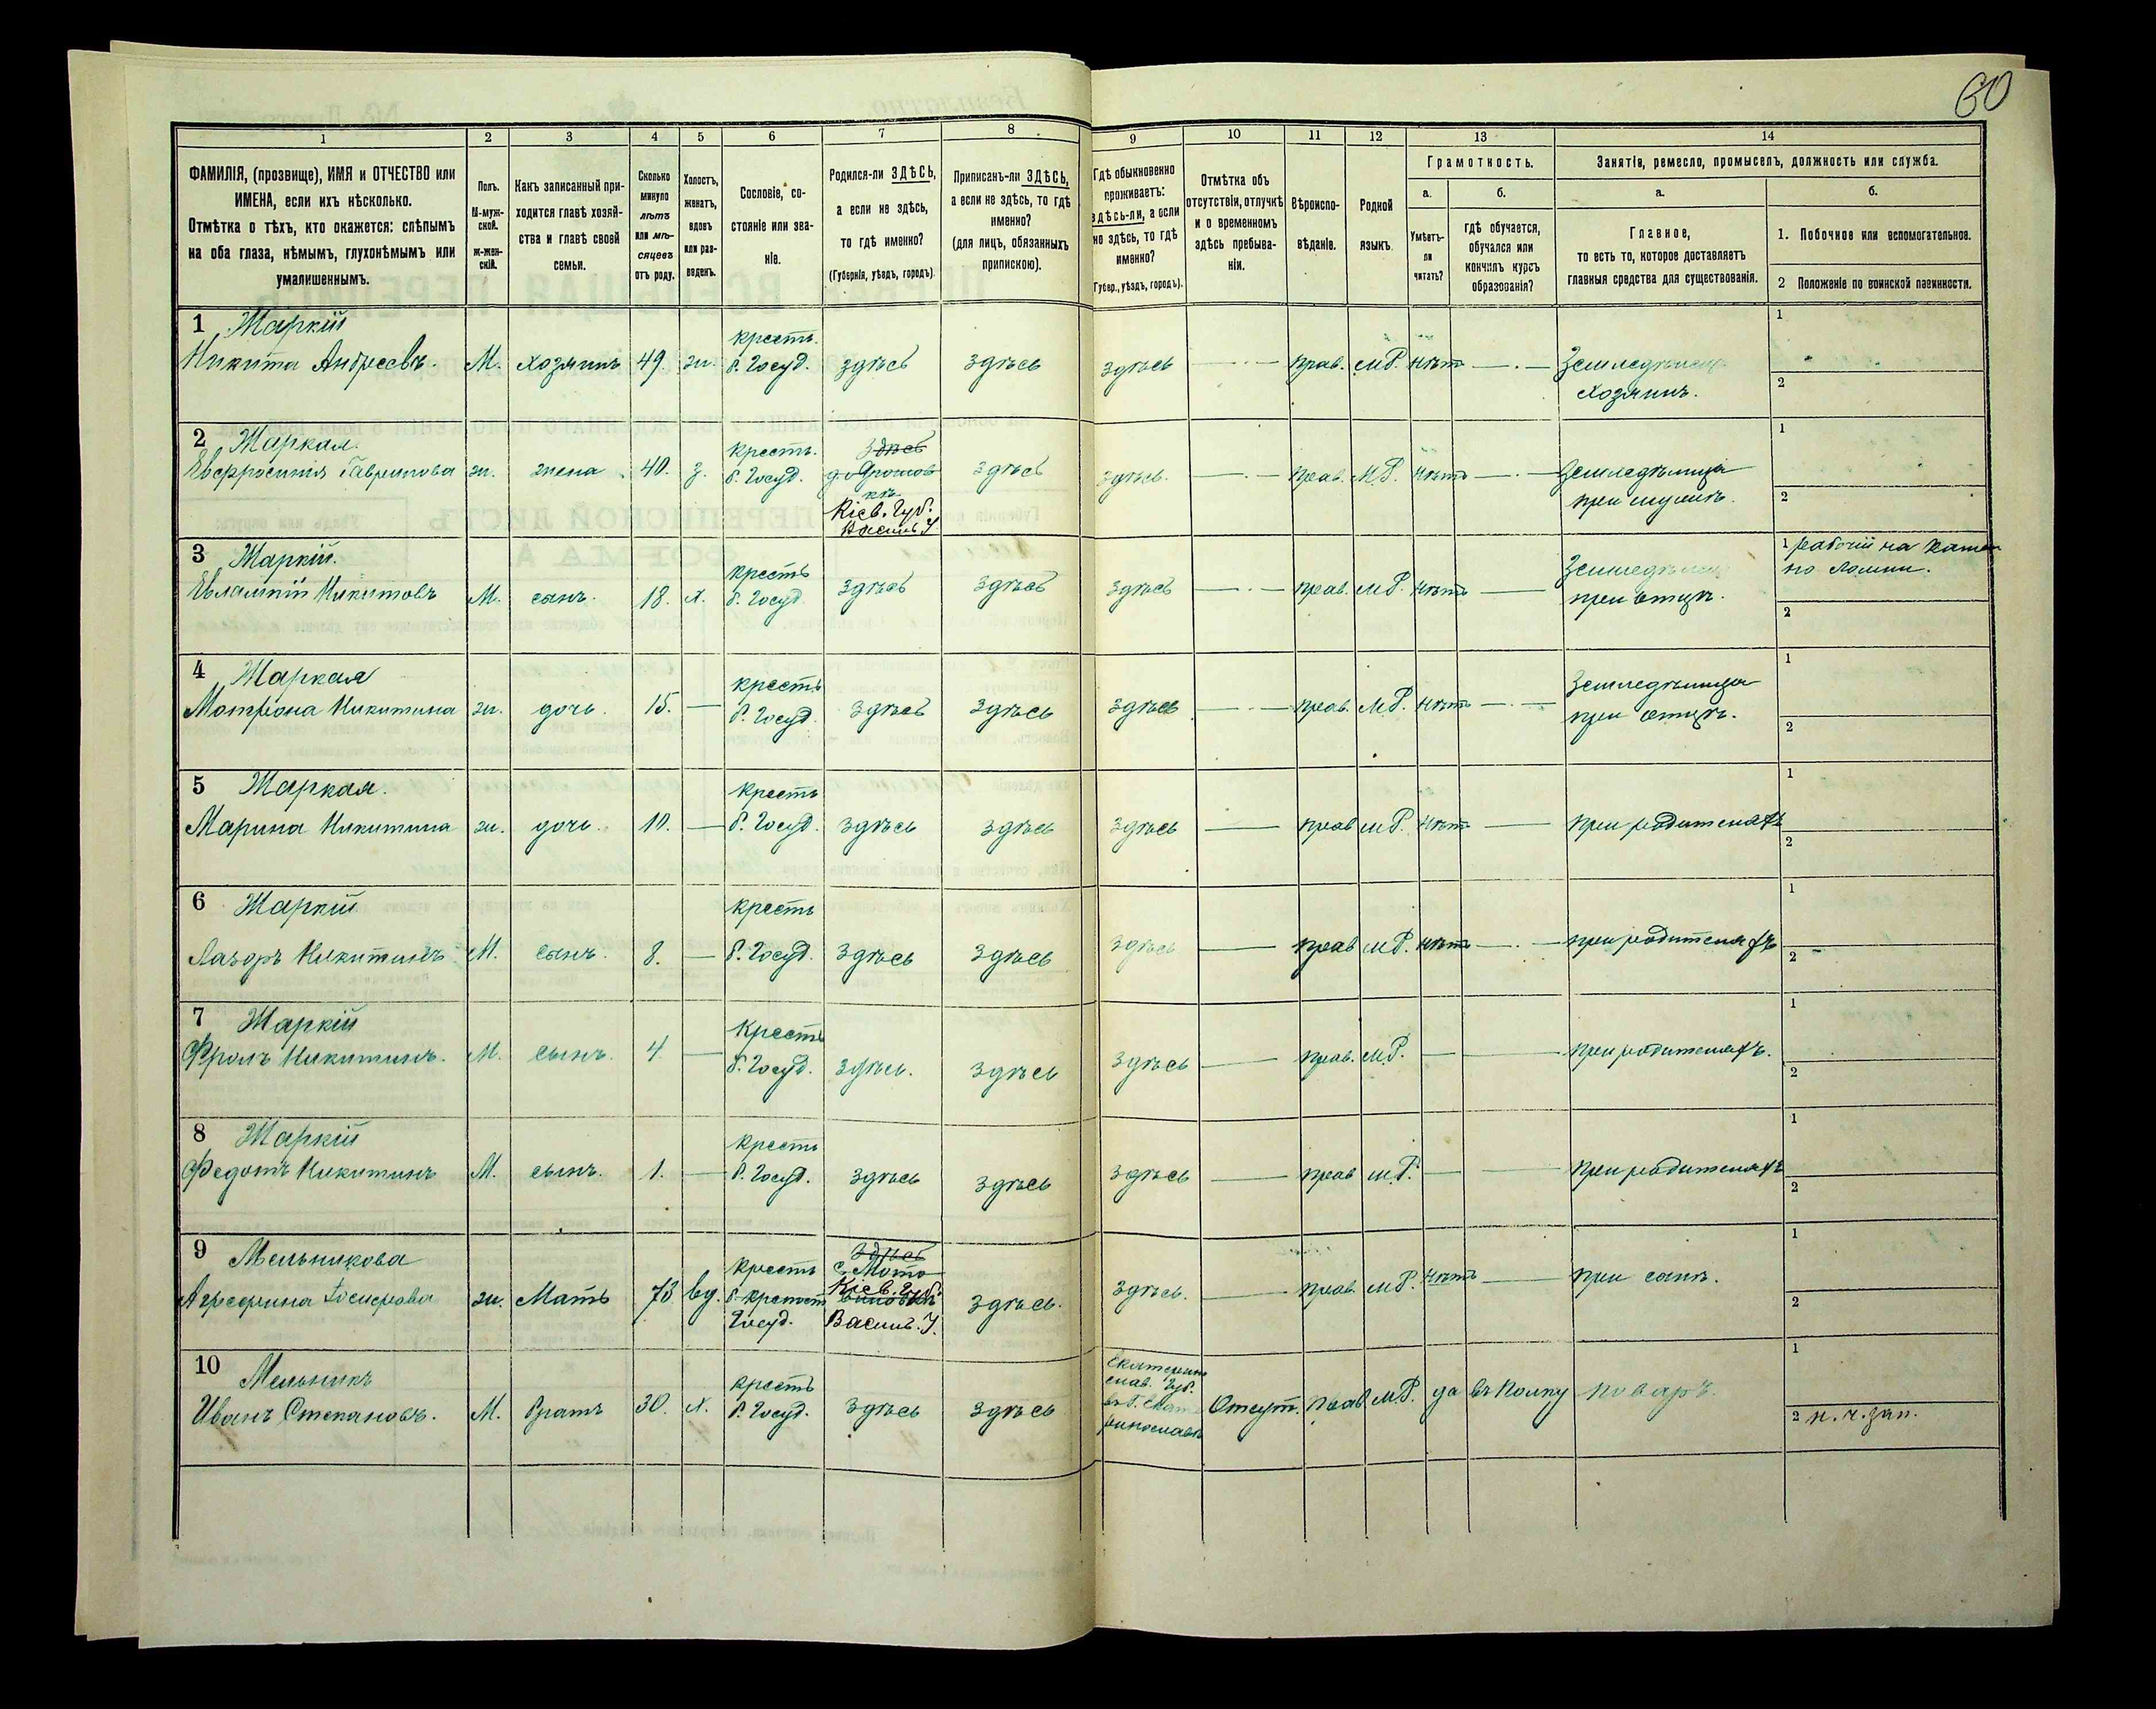 60
1
2
3
4
5
6
7
8
9
10
11
12
13
14
ФАМИЛІЯ, (прозвище), ИМЯ и ОТЧЕСТВО или
ИМЕНА, если ихъ нѣсколько.
Отмѣтка о тѣхъ, кто окажется: слѣпымъ
на оба глаза, нѣмымъ, глухонѣмымъ или
умалишеннымъ.
Полъ.
М-муж-
ской.
ж-жен-
скій.
Какъ записанный при-
ходится главѣ хозяй-
ства и главѣ своей
семьи.
Сколько
минуло
лѣтъ
или мѣ-
сяцевъ
отъ роду.
Холостъ,
женатъ,
вдовъ
или раз-
веденъ.
Сословіе, со-
стояніе или зва-
ніе.
Родился-ли ЗДѢСЬ,
а если не здѣсь,
то гдѣ именно?
(Губернія, уѣздъ, городъ).
Приписанъ-ли ЗДѢСЬ,
а если не здѣсь, то гдѣ
именно?
(для лицъ, обязанныхъ
припискою).
Гдѣ обыкновенно
проживаетъ:
здѣсь-ли, а если
не здѣсь, то гдѣ
именно?
Губер., уѣздъ, городъ).
Отмѣтка объ
отсутствіи, отлучкѣ
и о временномъ
здѣсь пребыва-
ніи.
Вѣроиспо-
вѣданіе.
Родной
языкъ.
Грамотность.
а.
Умѣетъ-
ли
читать?
б.
гдѣ обучается,
обучался или
кончилъ курсъ
образованія?
Занятіе, ремесло, промыселъ, должность или служба.
а.
Главное,
то есть то, которое доставляетъ
главныя средства для существованія.
б.
1. Побочное или вспомогательное.
2 Положеніе по воинской повинности.
1 Жаркій
Никита Андреевъ. М. хозяинъ 49. ж. крестъ. б. Госуд. здѣсь здѣсь здѣсь прав. М.Р. нѣтъ Земледѣлецъ
хозяинъ.
1
2
2 Жаркая.
Евфросинія Гаврилова ж. жена 40. з. крестъ. б. Госуд. здѣсь
Кіев. Губ.
Васил. У
здѣсь здѣсь. прав. М.Р. нѣтъ Земледѣлица
при мужѣ.
1
2
3 Жаркій.
Евлампій Никитовъ М. сынъ. 18. х. крестъ б. Госуд. здѣсь здѣсь здѣсь прав. М.Р. нѣтъ Земледѣлецъ
при отцѣ.
1 рабочій на камен
но ломни.
2
4 Жаркая
Мотрона Никитина ж. дочь. 15. крестъ б. Госуд. здѣсь здѣсь здѣсь прав. М.Р. нѣтъ Земледѣлица
при отцѣ.
1
2
5 Жаркая.
Марина Никитина ж. дочь. 10. крестъ б. Госуд. здѣсь здѣсь здѣсь прав М.Р. нѣтъ при родителяхъ
1
2
6 Жаркій
Лазоръ Никитинъ М. сынъ. 8. крестъ б. Госуд. здѣсь здѣсь здѣсь прав М.Р. нѣтъ при родителяхъ
1
2
7 Жаркій
Фролъ Никитинъ. М. сынъ. 4. крестъ б. Госуд. здѣсь. здѣсь здѣсь прав. М.Р. при родителяхъ.
1
2
8 Жаркій
Федотъ Никитинъ М. сынъ. 1. крестъ б. Госуд. здѣсь здѣсь здѣсь прав М.Р. при родителяхъ
1
2
9 Мельникова
Агрефина ж. Мать вд. крестъ
Госуд.
здѣсь
Кіев. Губ.
Васил. У.
здѣсь. здѣсь. прав. М.Р. нѣтъ при сынѣ.
1
2
10 Мельникъ
Иванъ Степановъ. М. братъ 30. х. крестъ б. Госуд. здѣсь здѣсь Отсут. прав М.Р. да въ полку поваръ.
1
2 н. ч. зап.